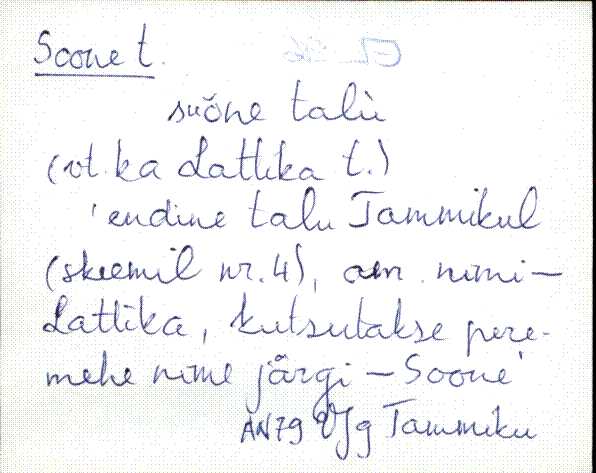 Soone t.
suȯne talù
(vt. ka Lattika t.)
'endine talu Tammikul
(skeemil nr. 4), am. nimi –
Lattika, kutsutakse pere-
mehe nime järgi – Soone'
AN79 VJg Tammiku